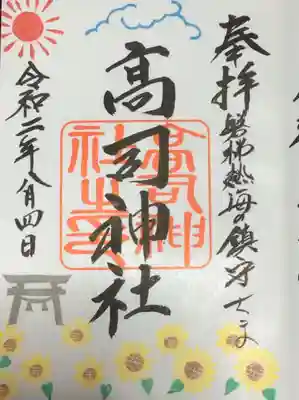 奉拝
磐梯熱海の鎮守さま
高司神社
高司神社之印
令和二年八月四日